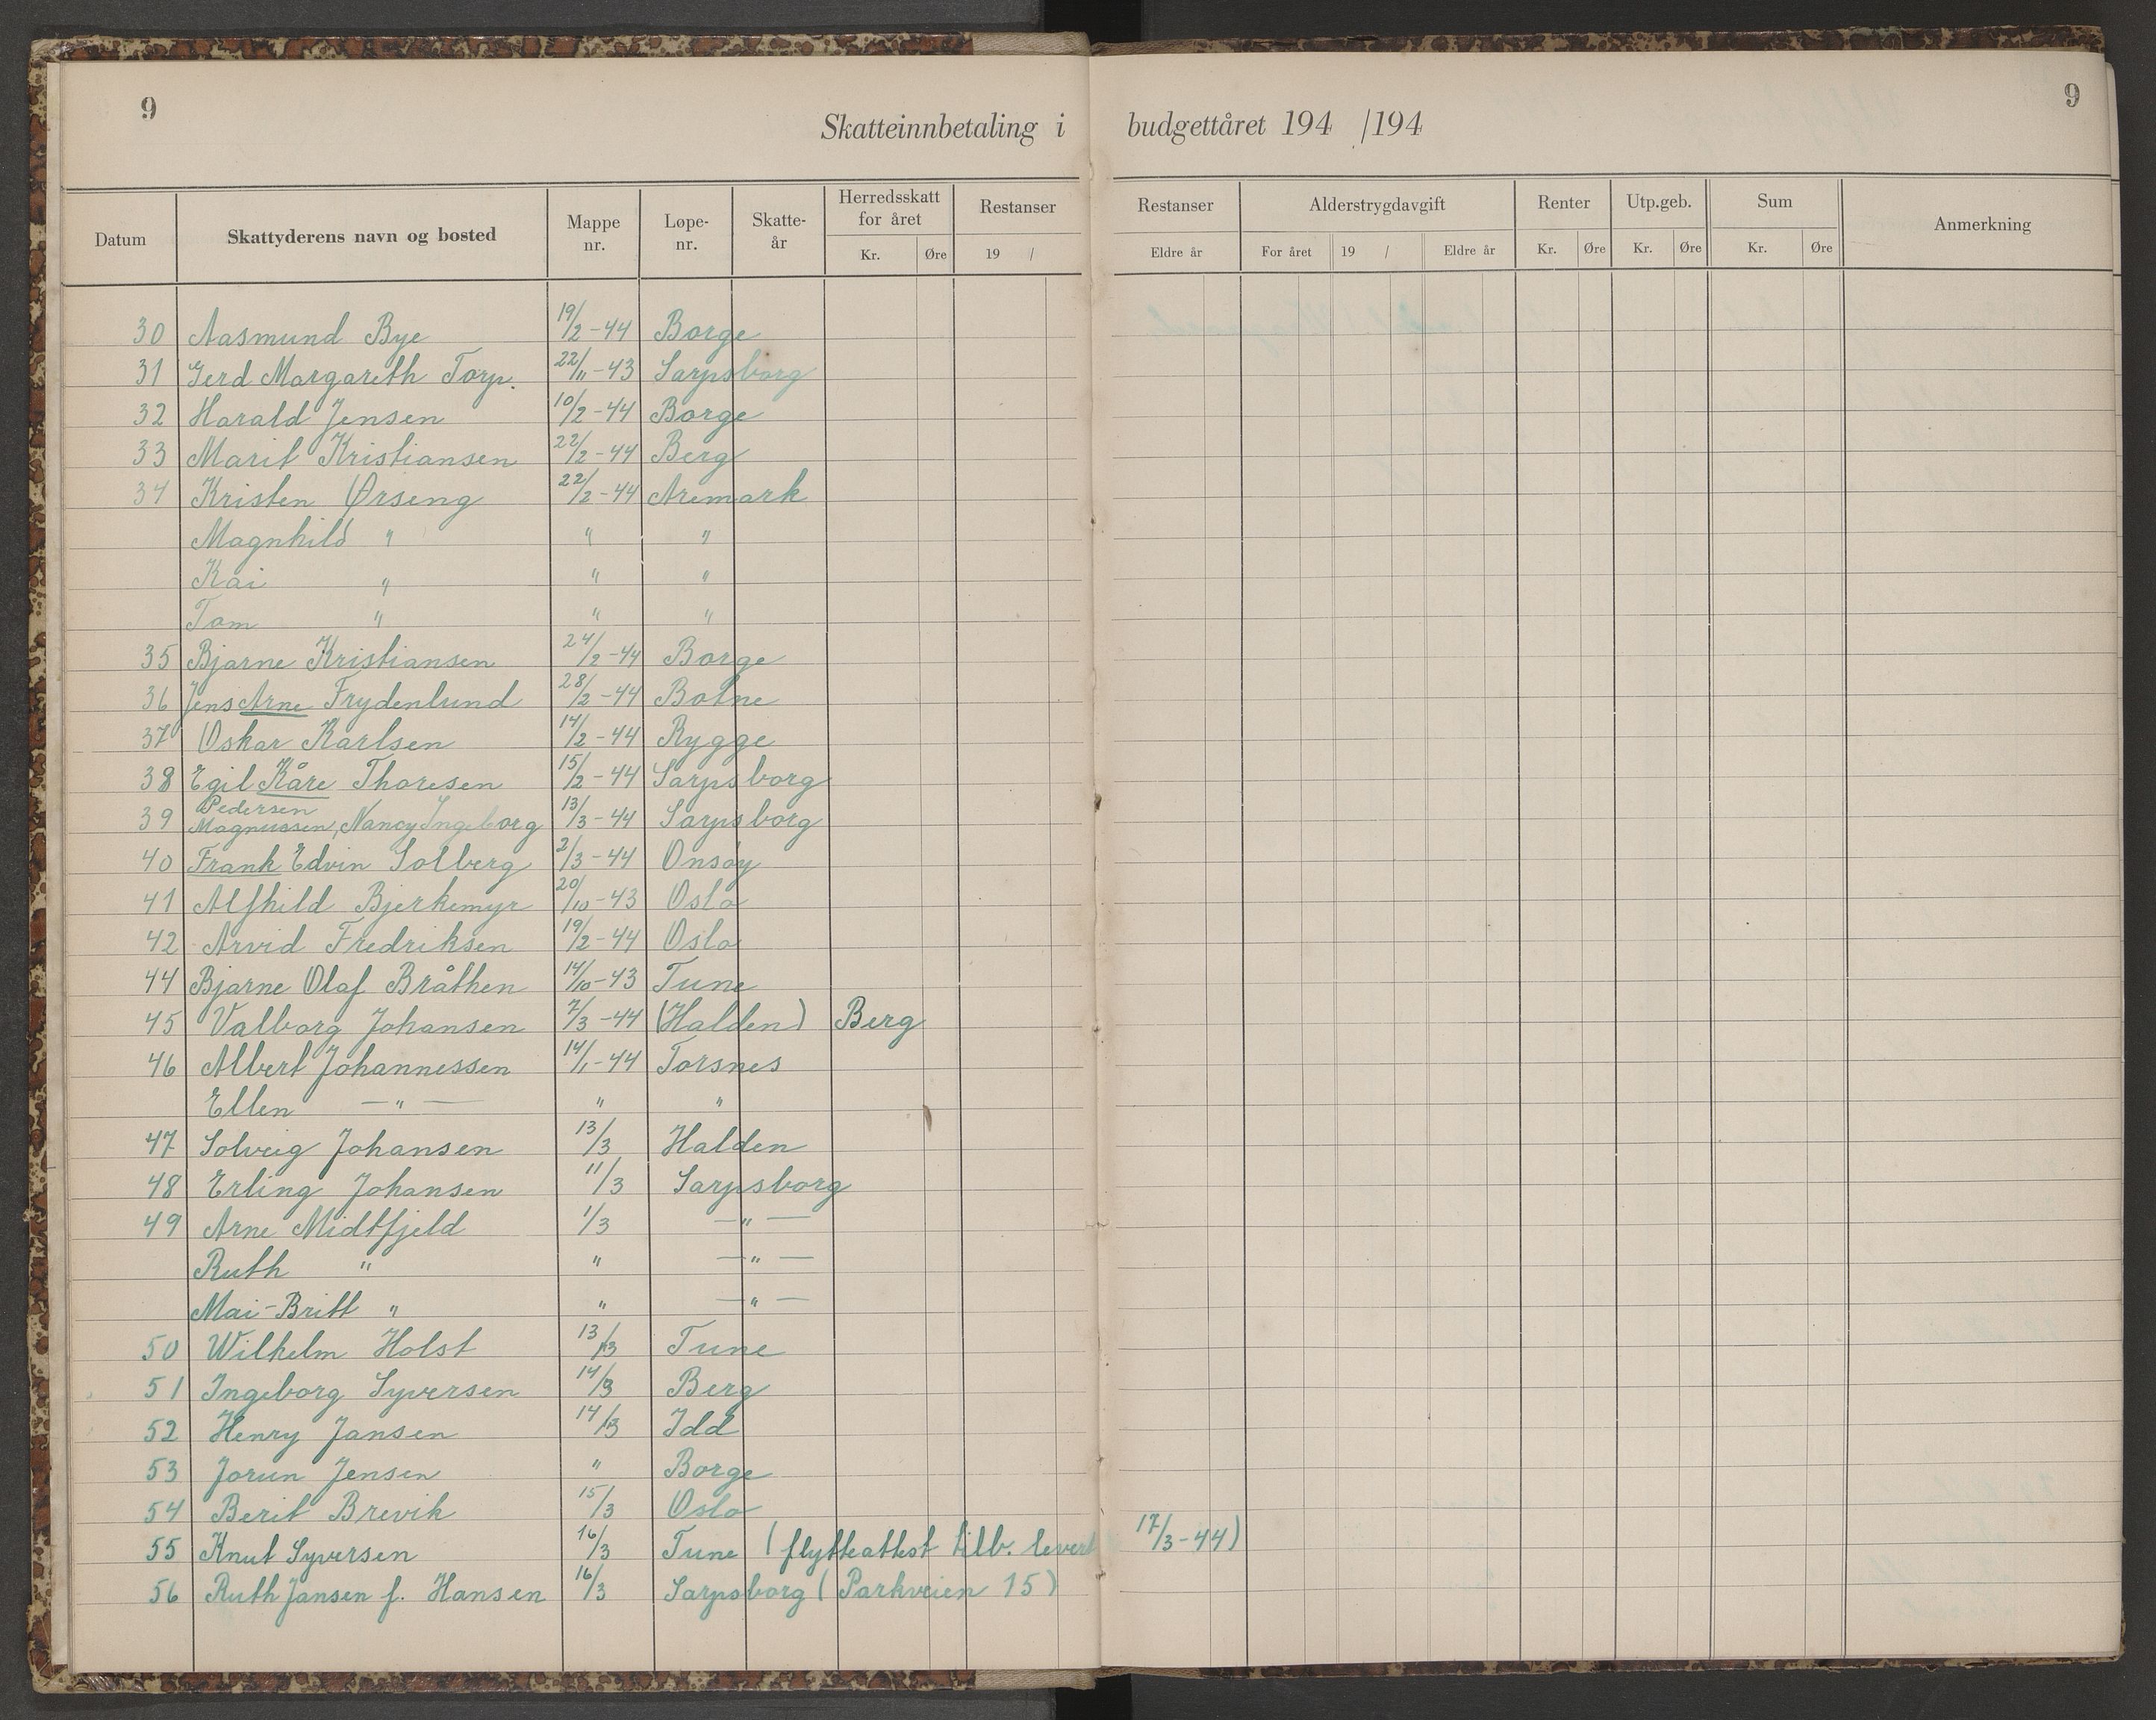 9
9
Skatteinnbetaling i budgettåret 194 /194
Datum Skattyderens navn og bosted Mappe nr. Løpe-nr. Skatte-år Herredsskatt for året Kr. Øre Restanser 19 / Restanser Eldre år Alderstrygdavgift For året 19 / Eldre år Renter Kr. Øre Utp.geb. Kr. Øre Sum Kr. Øre Anmerkning
30 Aasmund Bye 19/2-44 Borge
31 Gerd Margareth Torp. 22/11-43 Sarpsborg
32 Harald Jensen 10/2-44 Borge
33 Marit Kristiansen 22/2-44 Berg
34 Kristen Ørseng 22/2-44 Aremark
Magnhild " " "
Kai " " "
Tom " " "
35 Bjarne Kristiansen 24/2-44 Borge
36 Jens Arne Frydenlund 28/2-44 Botne
37 Oskar Karlsen 14/2-44 Rygge
38 Egil Kåre Thoresen 15/2-44 Sarpsborg
Pedersen
39 Magnussen, Nancy Ingeborg 13/3-44 Sarpsborg
40 Frank Edvin Solberg 2/3-44 Onsøy
41 Alfhild Bjerkemyr 20/10-43 Oslo
42 Arvid Fredriksen 19/2-44 Oslo
44 Bjarne Olaf Bråthen 14/10-43 Tune
45 Valborg Johansen 7/3-44 (Halden) Berg
46 Albert Johannessen 14/1-44 Torsnes
Ellen —"— " "
47 Solveig Johansen 13/3 Halden
48 Erling Johansen 11/3 Sarpsborg
49 Arne Midtfjeld 1/3 —"—
Ruth " " —"—
Mai-Britt " " —"—
50 Wilhelm Holst 13/3 Tune
51 Ingeborg Syversen 14/3 Berg
52 Henry Jansen 14/3 Idd
53 Jorun Jensen " Borge
54 Berit Brevik 15/3 Oslo
55 Knut Syversen 16/3 Tune (flytteattest tilb. levert 17/3-44)
56 Ruth Jansen f. Hansen 16/3 Sarpsborg (Parkveien 15)